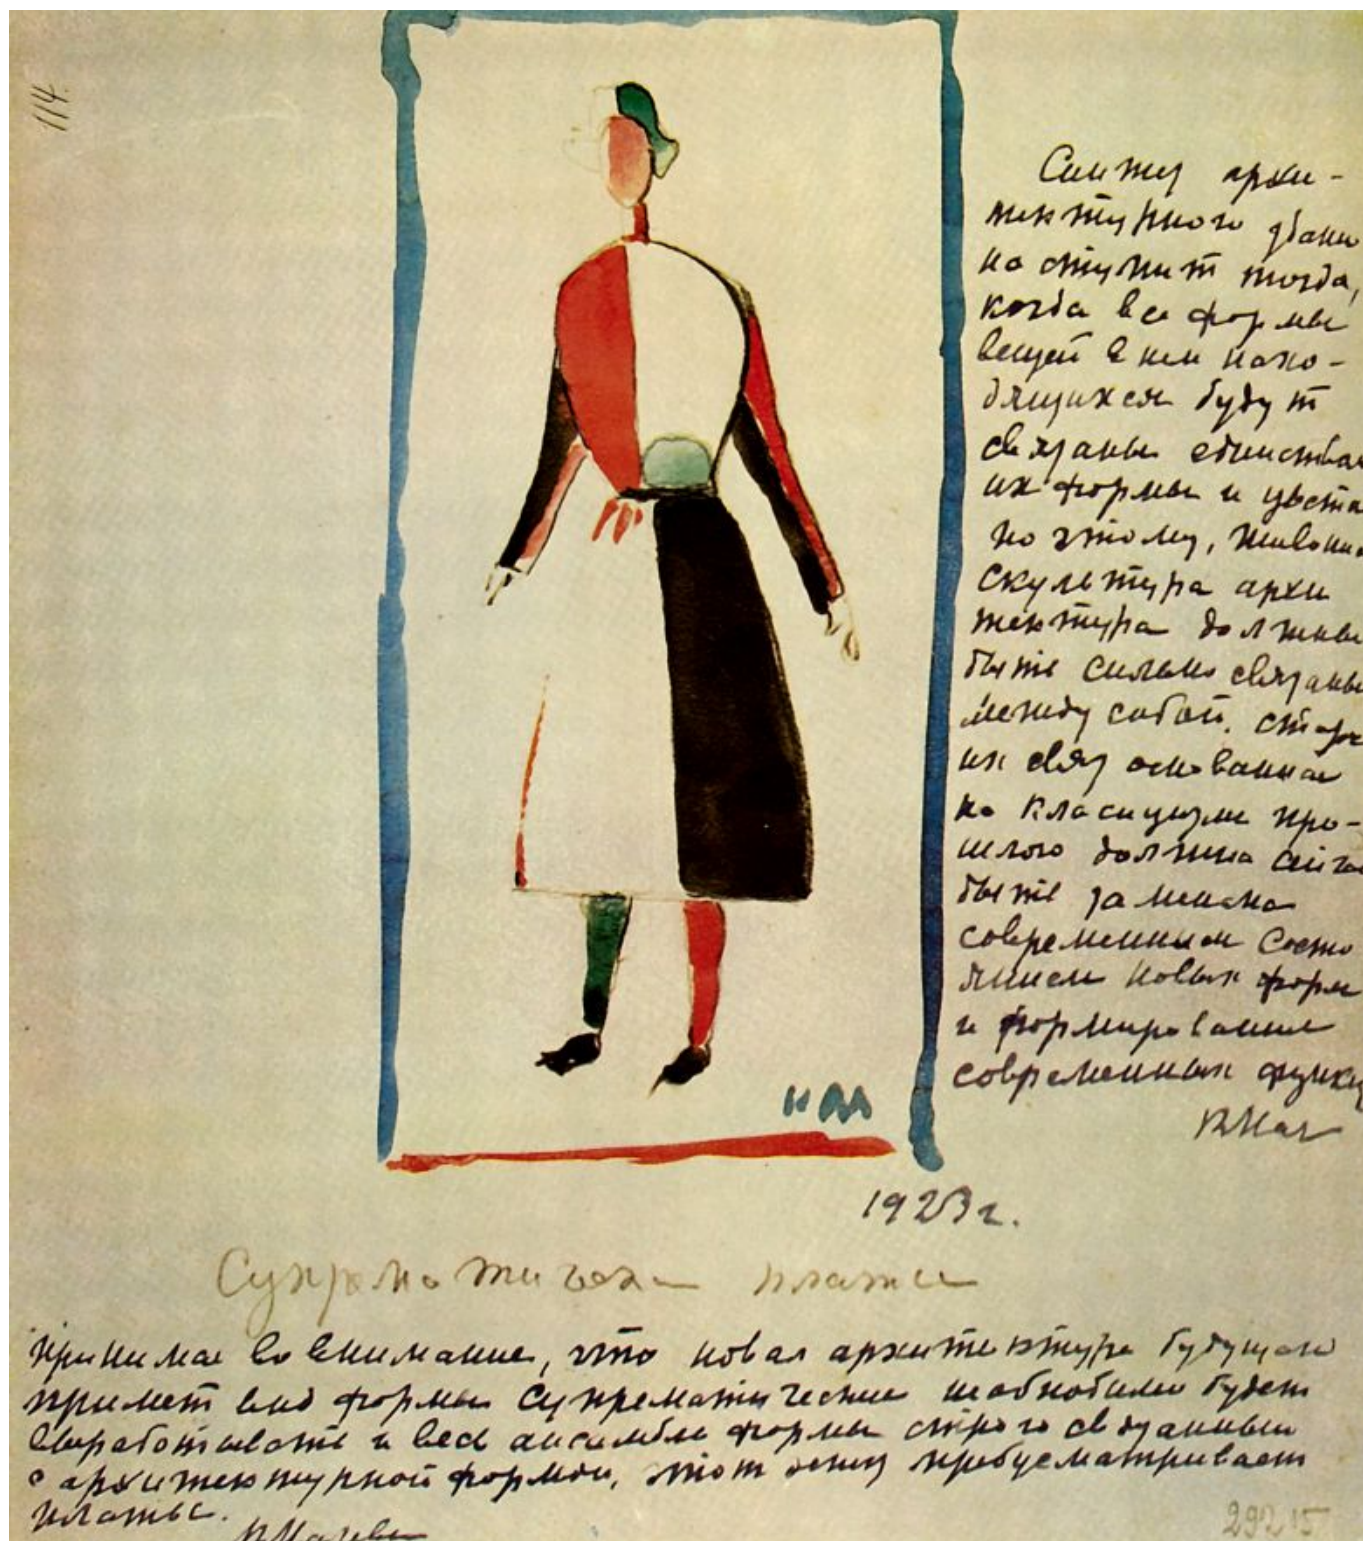 114.
Синтез архи-
тектурного здани
наступит тогда,
когда все формы
вещей в нем нахо-
дящихся будут
связаны единством
их формы и цвета
поэтому, живопи
скульптура архи
тектура должны
быть сильно связаны
между собой.
их связ основанная
на класицизме про-
шлого должна
быть заменена
современным состо
янием новых форм
и формирование
современных функц
КМал
КМ
1923 г.
Супрематическ платье
Принимае во внимание, что новая архитектура будущего
примет вид формы Супрематические необходимо будет
выработывать и весь ансамбль формы строго связанный
с архитектурной формой, этот эскиз предусматривает
платье.
К Малеви
29215